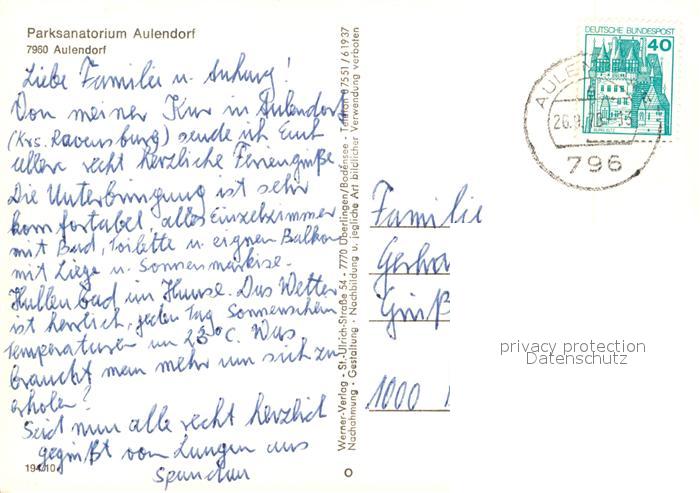 Parksanatorium Aulendorf
7960 Aulendorf
Liebe Familie u. Anhang!
Von meiner Kur in Aulendorf
(Krs. Ravensburg) sende ich Euch
allen recht herzliche Feriengrüße.
Die Unterbringung ist sehr
komfortabel, alles Einzelzimmer
mit Bad, Toilette u. eignen Balkon
mit Liege u. Sonnenmarkise.
Hallenbad im Hause. Das Wetter
ist herrlich, jeden Tag Sonnenschein
Temperaturen um 23°C. Was
braucht man mehr um sich zu
erholen?
Seid nun alle recht herzlich
gegrüßt von Lungen aus
Spandau
194/10
Werner-Verlag · St.-Ulrich-Straße 54 · 7770 Überlingen/Bodensee · Telefon 07551/61937
Nachahmung · Gestaltung · Nachbildung u. jegliche Art bildlicher Verwendung verboten
DEUTSCHE BUNDESPOST
40
BURG ELTZ
AULEN
796
Familie
Gerha
Grüß
1000
privacy protection
Datenschutz